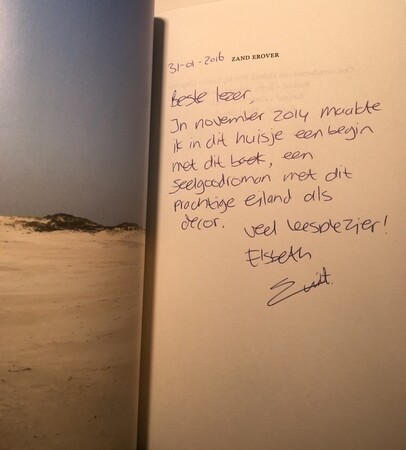 31-01-2016 ZAND EROVER
Beste lezer,
In november 2014 maakte
ik in dit huisje een begin
met dit boek, een
feelgoodroman met dit
prachtige eiland als
decor. Veel leesplezier!
Elsbeth